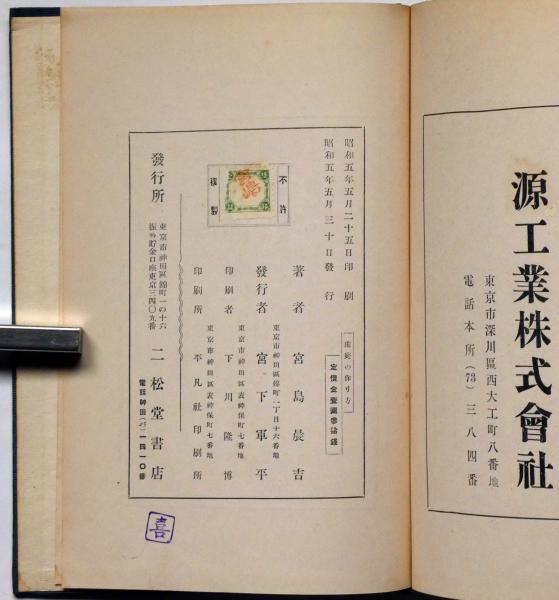 源工業株式會社
東京市深川區西大工町八番地
電話本所(73)三八四番
昭和五年五月二十五日印刷
昭和五年五月三十日發行
不許
複製
定價金壹圓參拾錢
著者 宮島晨吉
東京市神田區錦町一丁目十六番地
發行者 宮下軍平
東京市神田區表神保町七番地
印刷者 下川隆博
東京市神田區表神保町七番地
印刷所 平凡社印刷所
發行所
東京市神田區錦町一の十六
振替貯金口座東京三四〇九番
二松堂書店
喜